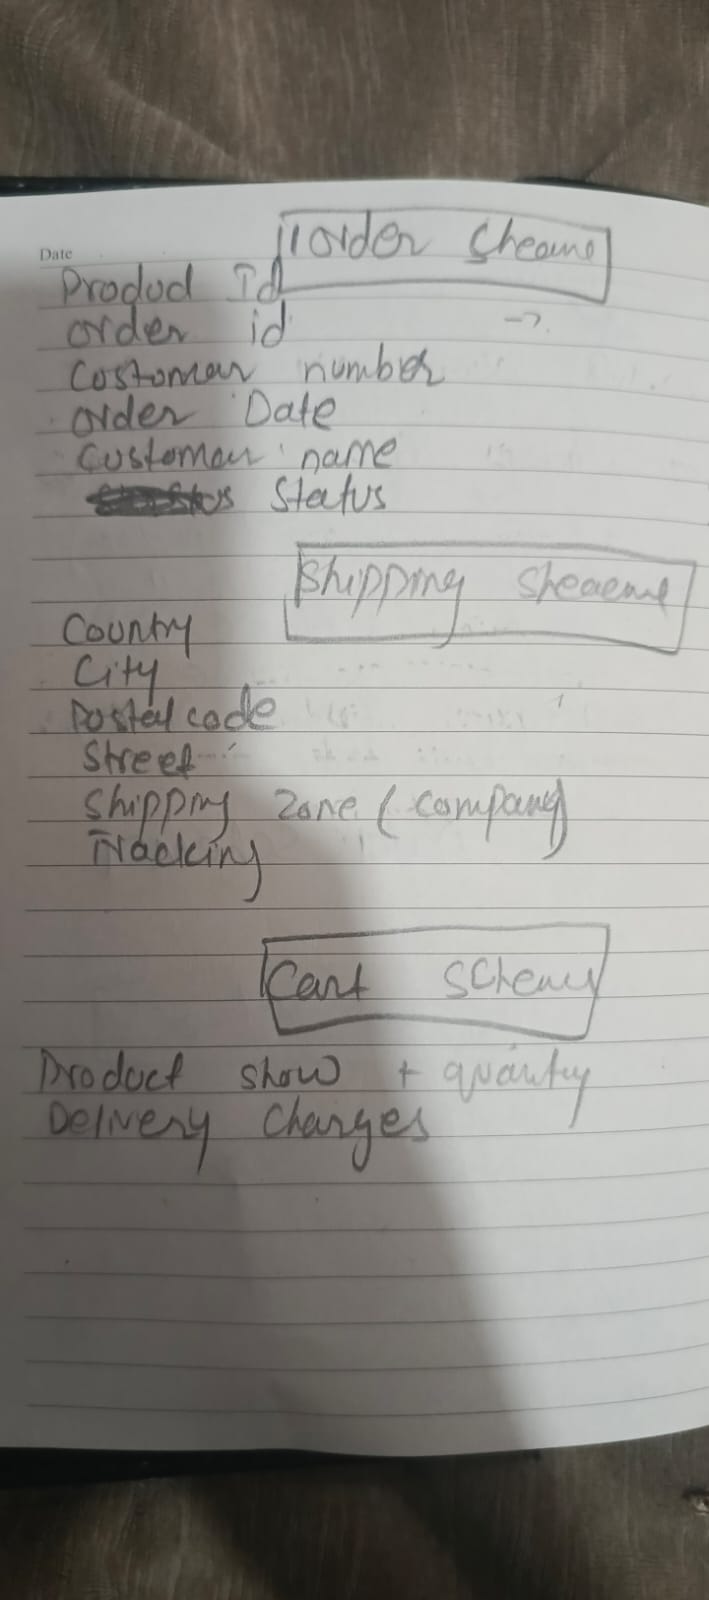 Order Scheama
Date
Product Id
order id
→
Costomar number
order Date
Customer name
Status
Shipping Sheaema
Country
City
Postal code
Street
Shipping Zone (company)
Tracking
Cart Schema
Product show + quantity
Delivery Charges